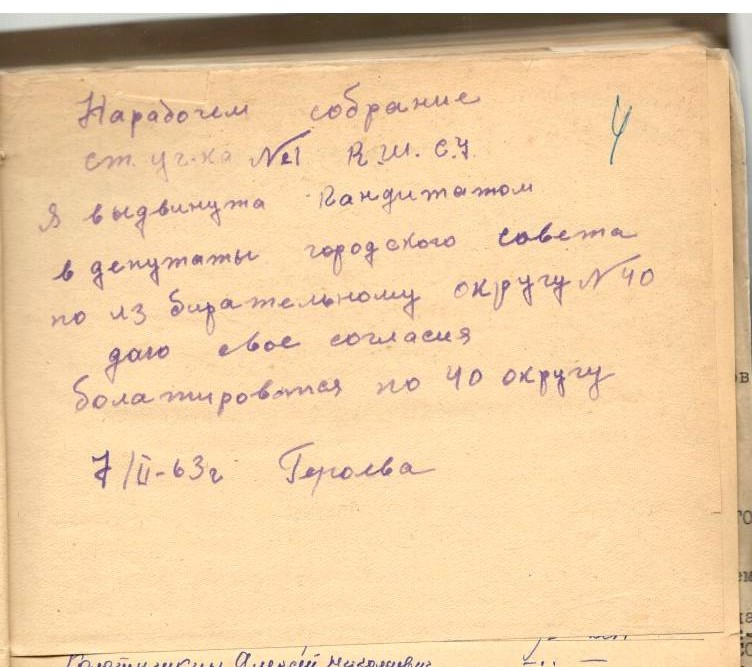 Нарабочем собрание
ст. уч-ка №1 К.Ш.С.У.
4
я выдвинута кандитатом
в депутаты городского совета
по из бирательному округу №40
даю свое согласия
болатироватся по 40 округу
7/II-63г
Алексей Николаевич